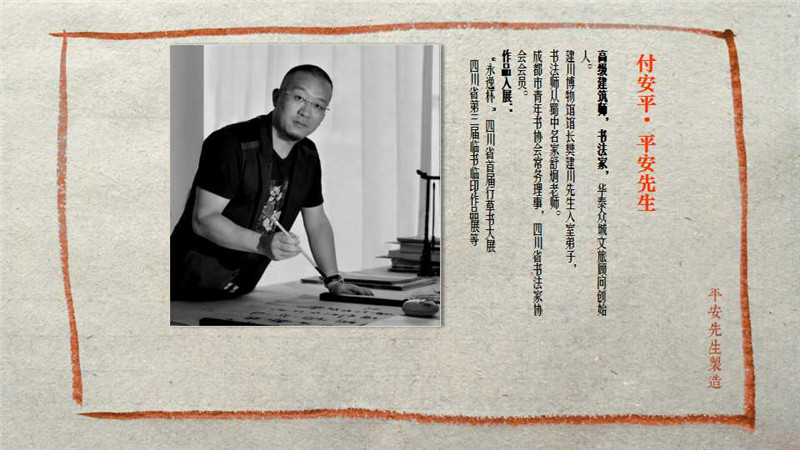 付安平·平安先生
高级建筑师,书法家,华秦众城文旅顾问创始
人。
建川博物馆馆长樊建川先生入室弟子,
书法师从蜀中名家舒炯老师。
成都市青年书协会常务理事,四川省书法家协
会会员。
作品入展:
“永逸杯”四川省首届行草书大展
四川省第三届临书临印作品展等
平安先生製造